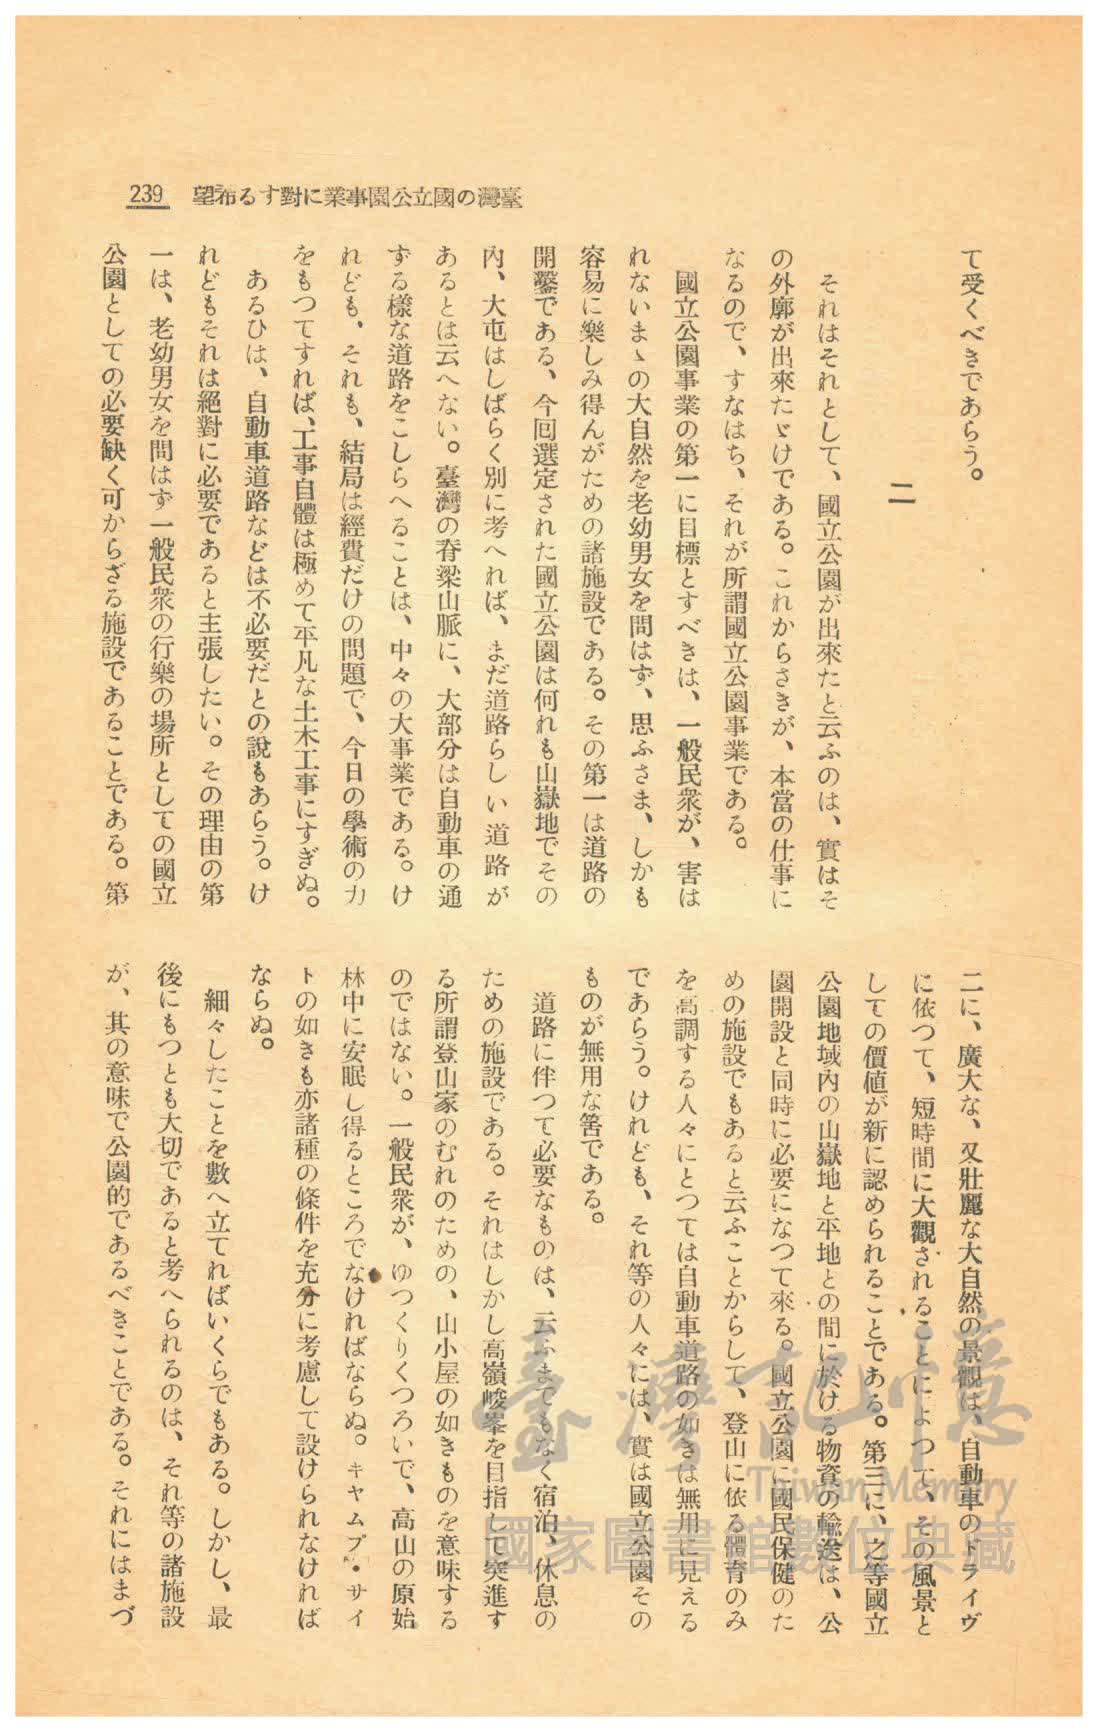 臺灣の國立公園事業に對する希望
239
て受くべきであらう。
二
それはそれとして、國立公園が出來たと云ふのは、實はそ
の外廓が出來たゞけである。これからさきが、本當の仕事に
なるので、すなはち、それが所謂國立公園事業である。
國立公園事業の第一に目標とすべきは、一般民衆が、害は
れないまゝの大自然を老幼男女を問はず、思ふさま、しかも
容易に樂しみ得んがための諸施設である。その第一は道路の
開鑿である、今回選定された國立公園は何れも山嶽地でその
內、大屯はしばらく別に考へれば、まだ道路らしい道路が
あるとは云へない。臺灣の脊梁山脈に、大部分は自動車の通
ずる樣な道路をこしらへることは、中々の大事業である。け
れども、それも、結局は經費だけの問題で、今日の學術の力
をもつてすれば、工事自體は極めて平凡な土木工事にすぎぬ。
あるひは、自動車道路などは不必要だとの說もあらう。け
れどもそれは絕對に必要であると主張したい。その理由の第
一は、老幼男女を問はず一般民衆の行樂の場所としての國立
公園としての必要缺く可からざる施設であることである。第
二に、廣大な、又壯麗な大自然の景觀は、自動車のドライヴ
に依つて、短時間に大觀されることによつて、その風景と
しての價値が新に認められることである。第三に、之等國立
公園地域內の山嶽地と平地との間に於ける物資の輸送は、公
園開設と同時に必要になつて來る。國立公園に國民保健のた
めの施設でもあると云ふことからして、登山に依る體育のみ
を高調する人々にとつては自動車道路の如きは無用に見える
であらう。けれども、それ等の人々には、實は國立公園その
ものが無用な筈である。
道路に伴つて必要なものは、云ふまでもなく宿泊、休息の
ための施設である。それはしかし高嶺峻峯を目指して突進す
る所謂登山家のむれのための、山小屋の如きものを意味する
のではない。一般民衆が、ゆつくりくつろいで、高山の原始
林中に安眠し得るところでなければならぬ。キヤムプ・サイ
トの如きも亦諸種の條件を充分に考慮して設けられなければ
ならぬ。
細々したことを數へ立てればいくらでもある。しかし、最
後にもつとも大切であると考へられるのは、それ等の諸施設
が、其の意味で公園的であるべきことである。それにはまづ
臺灣記憶
Taiwan Memory
國家圖書館數位典藏